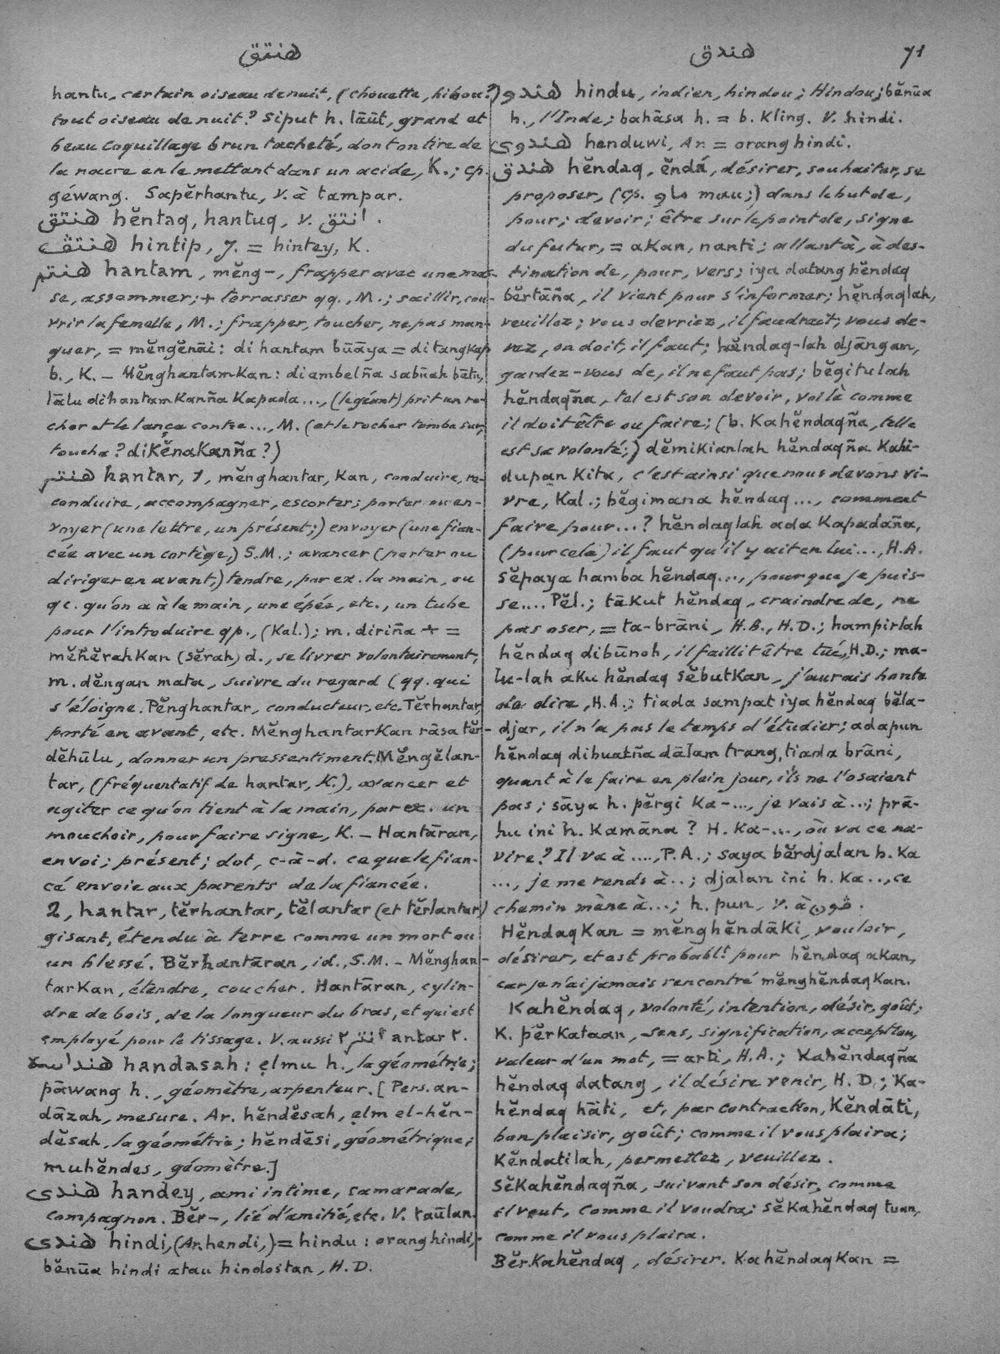 هنتق
هندق 71
hantu, certain oiseau de nuit, (chouette, hibou?)
tout oiseau de nuit? Siput h. lāūt, grand et
beau coquillage brun tacheté, dont on tire de
la nacre en le mettant dans un acide, K.; cp.
géwang. Sapĕrhantu, V. à tampar.
هنتق hĕntaq, hantuq, V. انتق.
هنتڤ hintip, J. = hintey, K.
هنتم hantam, mĕng-, frapper avec une mas-
se, assommer; + terrasser qq., M.; saillir, cou-
vrir la femelle, M.; frapper, toucher, ne pas man-
quer, = mĕngĕnāi: di hantam būāya = di tangkap
b., K. – Mĕnghantamkan: diambelña sabūah bātu,
lālu dihantamkanña kapada..., (le géant) prit un ro-
cher et le lança contre..., M. (et le rocher tomba sur,
toucha? dikĕnakanña?)
هنتر hantar, 1, mĕnghantar, kan, conduire, re-
conduire, accompagner, escorter; porter ou en-
voyer (une lettre, un présent;) envoyer (une fian-
cée avec un cortège,) S.M.; avancer (porter ou
diriger en avant,) tendre, par ex. la main, ou
qc. qu'on a à la main, une épée, etc., un tube
pour l'introduire qp., (Kal.); m. diriña + =
mĕñĕrahkan (sĕrah) d., se livrer volontairement;
m. dĕngan mata, suivre du regard (qq. qui
s'éloigne. Pĕnghantar, conducteur, etc. Tĕrhantar
porté en avant, etc. Mĕnghantarkan rāsa tĕr-
dĕhūlu, donner un pressentiment. Mĕngĕlan-
tar, (fréquentatif de hantar, K.), avancer et
agiter ce qu'on tient à la main, par ex. un
mouchoir, pour faire signe, K. – Hantāran,
envoi; présent; dot, c-à-d. ce que le fian-
cé envoie aux parents de la fiancée.
2, hantar, tĕrhantar, tĕlantar (et tĕrlantur)
gisant, étendu à terre comme un mort ou
un blessé. Bĕrhantāran, id., S.M. – Mĕnghan-
tarkan, étendre, coucher. Hantāran, cylin-
dre de bois, de la longueur du bras, et qui est
employé pour le tissage. V. aussi انتر ٢ antar ٢.
هندسه handasah: ẹlmu h., la géométrie;
pāwang h., géomètre, arpenteur. [Pers. an-
dāzah, mesure. Ar. hĕndĕsah, ẹlm el-hĕn-
dĕsah, la géométrie; hĕndĕsi, géométrique;
muhĕndes, géomètre.]
هندى handey, ami intime, camarade,
compagnon. Bĕr-, lié d'amitié, etc. V. taūlan.
هندى hindi, (Ar. hendi,) = hindu: orang hindi,
bĕnūa hindi atau hindostan, H.D.
هندو hindu, indien, hindou; Hindou; bĕnūa
h., l'Inde; bahāsa h. = b. Kling. V. hindi.
هندوى henduwi, Ar. = orang hindi.
هندق hĕndaq, ĕndá, désirer, souhaiter, se
proposer, (cp. ماو mau;) dans le but de,
pour; devoir; être sur le point de, signe
du futur, = akan, nanti; allant à, à des-
tination de, pour, vers; iya datang hĕndaq
bĕrtāña, il vient pour s'informer; hĕndaqlah,
veuillez; vous devriez, il faudrait, vous de-
vez, on doit, il faut; hĕndaq-lah djāngan,
gardez-vous de, il ne faut pas; bĕgitulah
hĕndaqña, tel est son devoir, voilà comme
il doit être ou faire; (b. kahĕndaqña, telle
est sa volonté;) dĕmikianlah hĕndaqña kahi-
dupan kita, c'est ainsi que nous devons vi-
vre, Kal.; bĕgimana hĕndaq..., comment
faire pour...? hĕndaqlah ada kapadāña,
(pour cela) il faut qu'il y ait en lui..., H.A.
Sĕpaya hamba hĕndaq..., pour que je puis-
se.... Pĕl.; tākut hĕndaq, craindre de, ne
pas oser, = ta-brāni, H.B., H.D.; hampirlah
hĕndaq dibūnoh, il faillit être tué, H.D.; ma-
lu-lah aku hĕndaq sĕbutkan, j'aurais honte
de dire, H.A.; tiada sampat iya hĕndaq bĕla-
djar, il n'a pas le temps d'étudier; adapun
hĕndaq dibuatña dālam trang, tiada brāni,
quant à le faire en plein jour, ils ne l'osaient
pas; sāya h. pĕrgi ka-..., je vais à...; prā-
hu ini h. kamāna? H. ka-..., où va ce na-
vire? Il va à ...., P.A.; saya bĕrdjalan h. ka
..., je me rends à..; djalan ini h. ka.., ce
chemin mène à...; h. pun, V. à ڤون.
Hĕndaqkan = mĕnghĕndāki, vouloir,
désirer, et est probablt. pour hĕndaq akan,
car je n'ai jamais rencontré mĕnghĕndaqkan.
Kahĕndaq, volonté, intention, désir, goût;
K. pĕrkataan, sens, signification, acception,
valeur d'un mot, = arti, H.A.; Kahĕndaqña
hĕndaq datang, il désire venir, H.D.; Ka-
hĕndaq hāti, et, par contraction, Kĕndāti,
bon plaisir, goût; comme il vous plaira;
Kĕndatilah, permettez, veuillez.
Sĕkahĕndaqña, suivant son désir, comme
il veut, comme il voudra; sĕkahĕndaq tuan,
comme il vous plaira.
Bĕrkahĕndaq, désirer. Kahĕndaqkan =